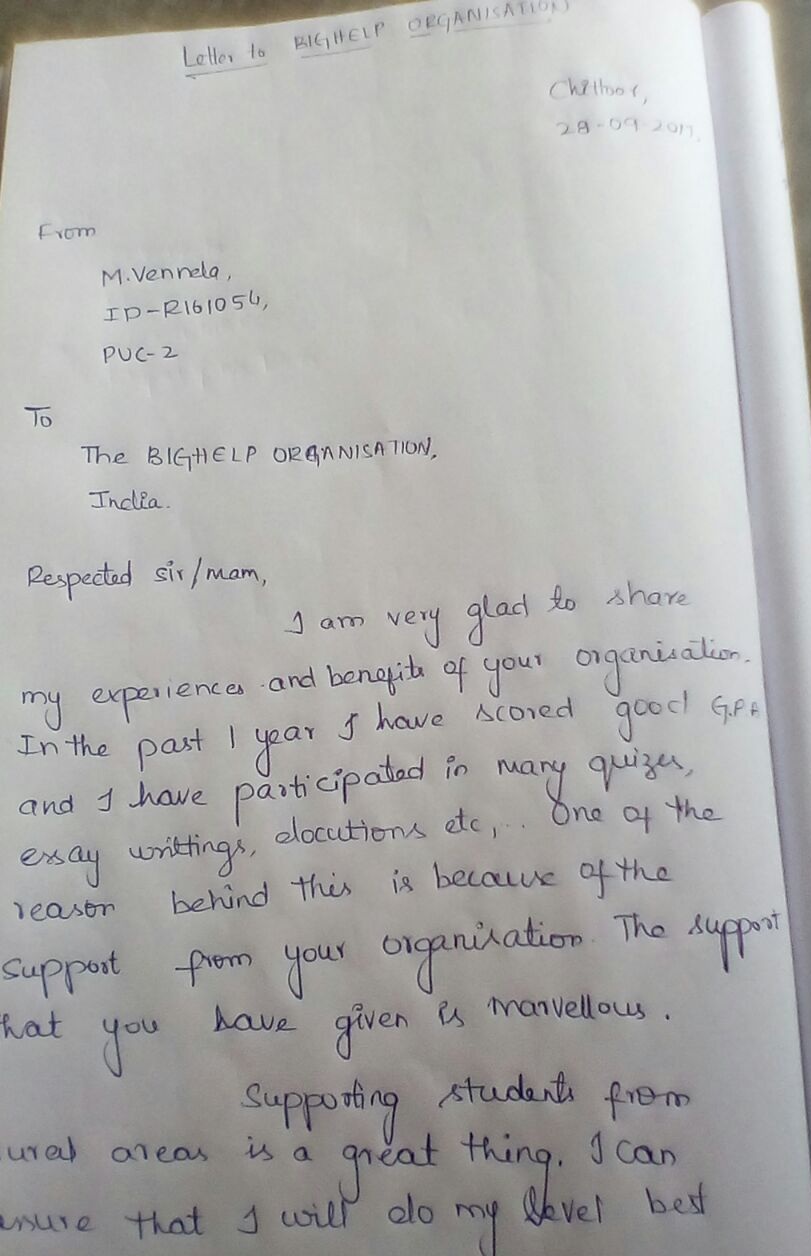 Letter to BIGHELP ORGANISATION
Chittoor,
28-09-2017.
From
M.Vennela,
ID-R161054,
PUC-2
To
The BIGHELP ORGANISATION,
India.
Respected sir/mam,
I am very glad to share
my experiences and benefits of your organisation.
In the past 1 year I have scored good G.PA
and I have participated in many quizes,
essay writtings, elocutions etc,.. One of the
reason behind this is because of the
support from your organisation. The support
hat you have given is marvellous.
Supporting students from
ural areas is a great thing. I can
ensure that I will do my level best